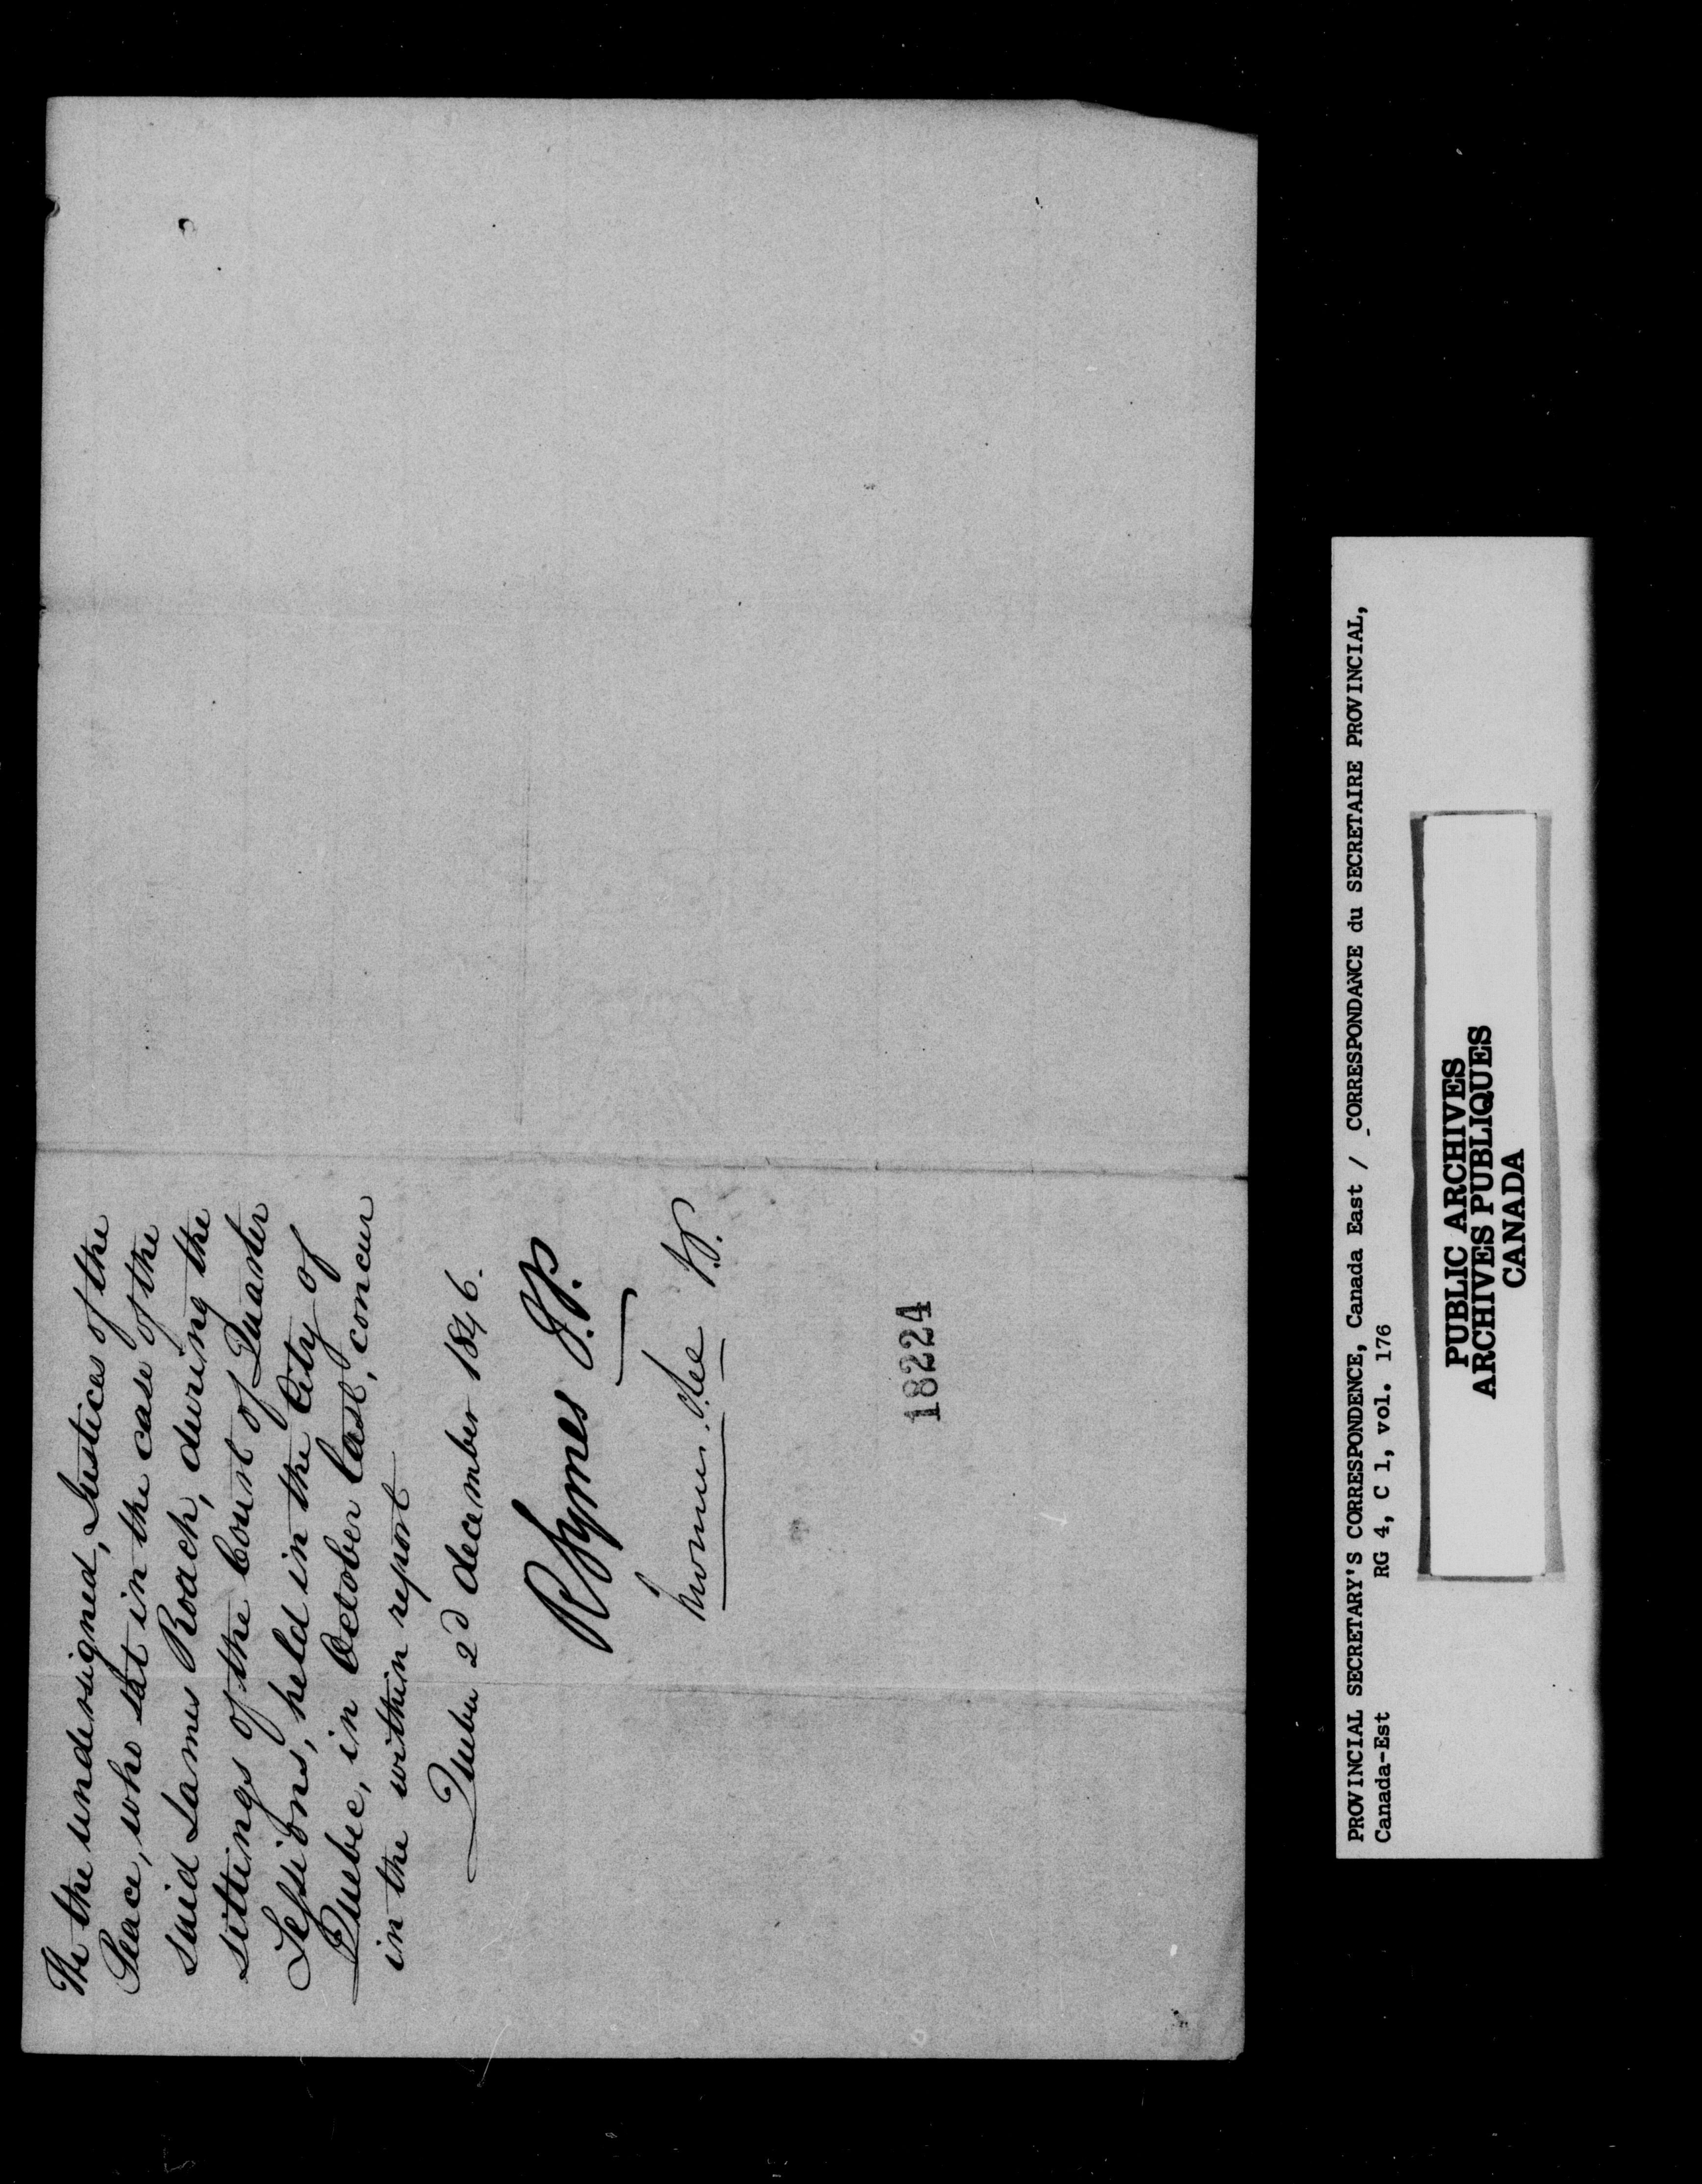 We the undersigned, Justices of the
Peace, who sat in the case of the
said James Roach, during the
sittings of the Court of Quarter
Sessions, held in the City of
Quebec, in October last, concur
in the within report
Quebec 2d december 1846.
R Symes J.P.
J.P.
18224
PROVINCIAL SECRETARY'S CORRESPONDENCE, Canada East / CORRESPONDANCE du SECRETAIRE PROVINCIAL,
Canada-Est RG 4, C 1, vol. 176
PUBLIC ARCHIVES
ARCHIVES PUBLIQUES
CANADA